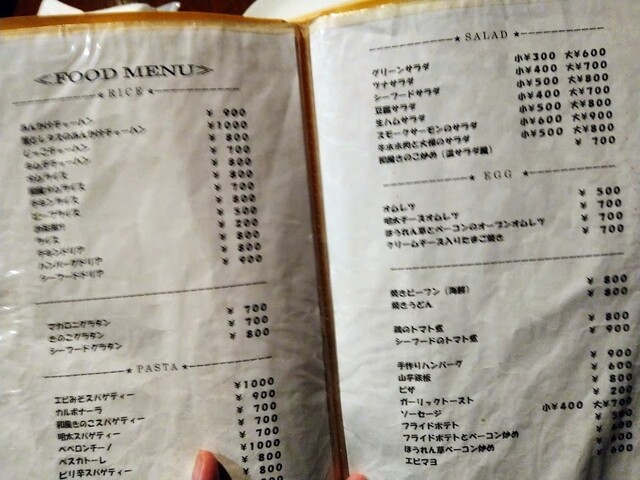 ≪FOOD MENU≫
★ RICE ★
あんかけチャーハン ¥ 900
のあんかけチャーハン ¥1000
じゃこチャーハン ¥ 800
キムチチャーハン ¥ 700
オムライス ¥ 800
和風オムライス ¥ 800
チキンライス ¥ 700
ビーフライス ¥ 800
お茶漬け ¥ 500
ライス ¥ 200
チキンドリア ¥ 800
ハンバーグドリア ¥ 800
シーフードドリア ¥ 900
マカロニグラタン ¥ 700
きのこグラタン ¥ 700
シーフードグラタン ¥ 800
★ PASTA ★
エビみそスパゲティー ¥1000
カルボナーラ ¥ 900
和風きのこスパゲティー ¥ 700
明太スパゲティー ¥ 700
ペペロンチーノ ¥ 700
ペスカトーレ ¥1000
ピリ辛スパゲティー ¥ 800
¥ 800
★ SALAD ★
グリーンサラダ 小¥300 大¥600
ツナサラダ 小¥400 大¥700
シーフードサラダ 小¥500 大¥800
豆腐サラダ 小¥400 大¥700
生ハムサラダ 小¥500 大¥800
スモークサーモンのサラダ 小¥600 大¥900
と大根のサラダ 小¥500 大¥800
和風きのこ炒め（温サラダ風） ¥ 700
★ EGG ★
オムレツ ¥ 500
明太チーズオムレツ ¥ 700
ほうれん草とベーコンのオープンオムレツ ¥ 700
クリームチーズ入りたまご焼き ¥ 700
焼きビーフン（海鮮） ¥ 800
焼きうどん ¥ 800
鶏のトマト煮 ¥ 800
シーフードのトマト煮 ¥ 900
手作りハンバーグ ¥ 900
山芋鉄板 ¥ 600
ピザ ¥ 800
ガーリックトースト ¥ 200
ソーセージ 小¥400 大¥700
フライドポテト
フライドポテトとベーコン炒め
ほうれん草ベーコン炒め ¥ 600
エビマヨ